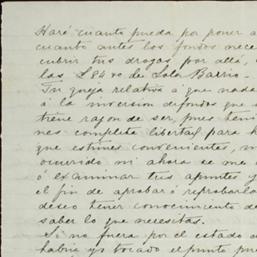 Haré cuanto pueda por poner a
cuanto antes los fondos nece
cubrir tus drogas por allá,
las $84.00 de Lola Barrio.
Tu queja relativa á que nada
á la inversion de fondos que
tiene razon de ser, pues tení
nes completa libertad para h
que estimes convenientes, n
ocurrido ni ahora se me
ó examinar tres apuntes y
el fin de aprobar ó reprobarla
deseo tener conocimiento de
saber lo que necesitas.
Si no fuera por el estado
habria yo tocado el punto pue